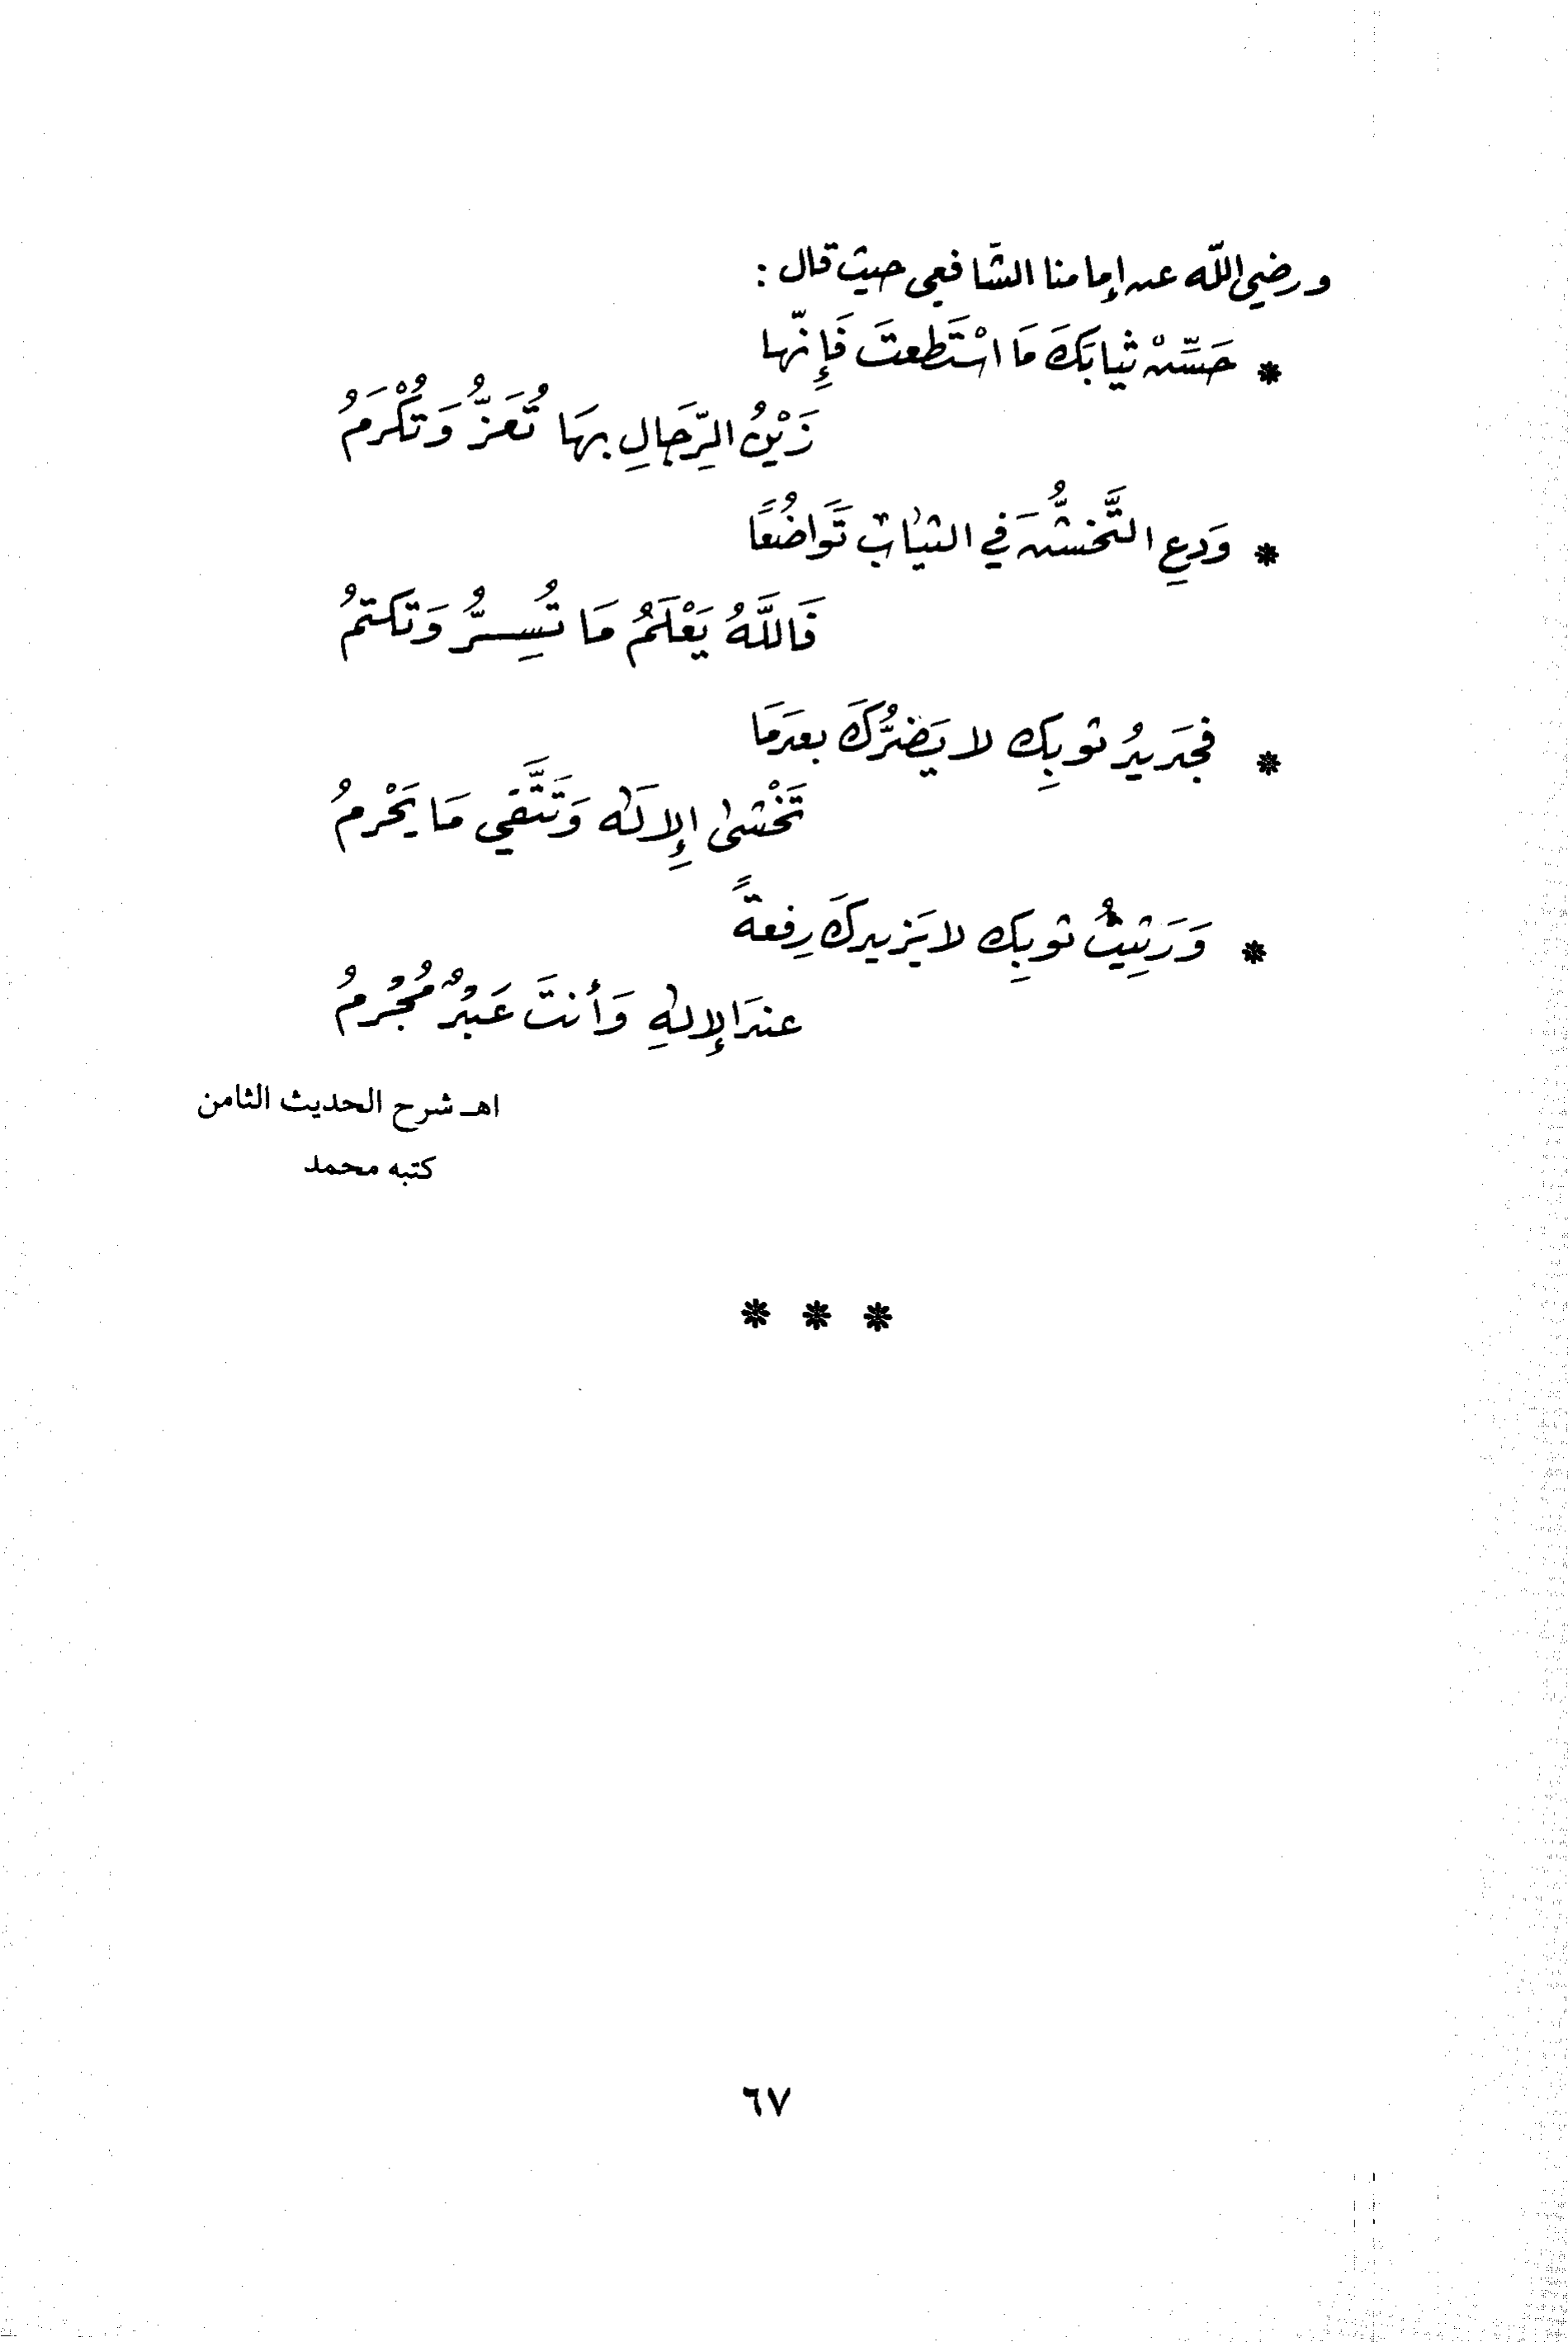 ورضي اللّه عن إمامنا الشافعي حيث قال :
* حَسِّنْ ثيابَكَ مَا اسْتَطعتَ فَإِنّها
زَيْنُ الرِّجَالِ بهَا تُعَزُّ وَتُكْرَمُ
* وَدعِ التَّخشُّنَ في الثيابِ تَواضُعًا
فَاللَّهُ يَعْلَمُ مَا تُسِرُّ وَتكتمُ
* فجَديدُ ثوبِك لا يَضرُّكَ بعدَمَا
تَخْشى الإلَه وَتَتَّقي مَا يَحْرمُ
* وَرَثِيثُ ثوبِك لا يَزيدكَ رِفعةً
عندَ الإلهِ وَأنتَ عَبدٌ مُجْرمُ
اهـ شرح الحديث الثامن
كتبه محمد
* * *
٦٧